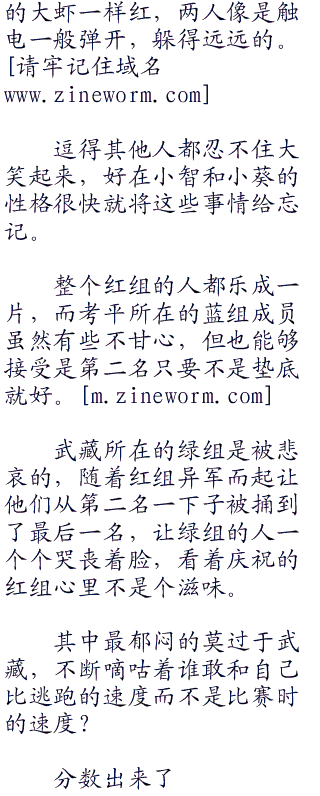 的大虾一样红，两人像是触
电一般弹开，躲得远远的。
[请牢记住域名
www.zineworm.com]
逗得其他人都忍不住大
笑起来，好在小智和小葵的
性格很快就将这些事情给忘
记。
整个红组的人都乐成一
片，而考平所在的蓝组成员
虽然有些不甘心，但也能够
接受是第二名只要不是垫底
就好。[m.zineworm.com]
武藏所在的绿组是被悲
哀的，随着红组异军而起让
他们从第二名一下子被捅到
了最后一名，让绿组的人一
个个哭丧着脸，看着庆祝的
红组心里不是个滋味。
其中最郁闷的莫过于武
藏，不断嘀咕着谁敢和自己
比逃跑的速度而不是比赛时
的速度？
分数出来了